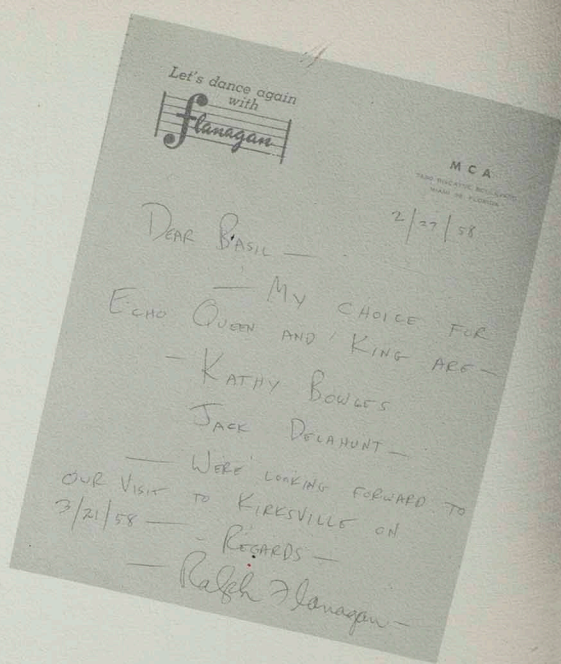 Let's dance again
with
flanagan
MCA
MIAMI 38, FLORIDA
2/27/58
DEAR BASIL —
— MY CHOICE FOR
ECHO QUEEN AND KING ARE —
— KATHY BOWLES
JACK DELAHUNT —
— WE'RE LOOKING FORWARD TO
OUR VISIT TO KIRKSVILLE ON
3/21/58 —
- REGARDS —
— Ralph Flanagan —